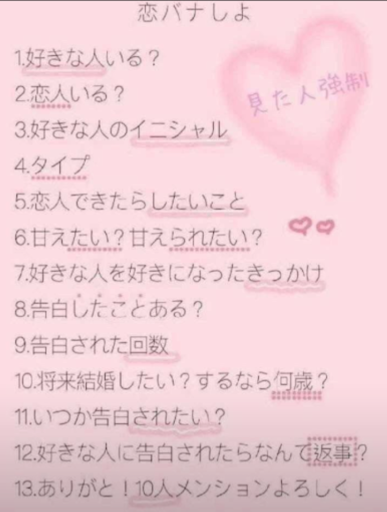 恋バナしよ
見た人強制
1.好きな人いる？
2.恋人いる？
3.好きな人のイニシャル
4.タイプ
5.恋人できたらしたいこと
6.甘えたい？甘えられたい？
7.好きな人を好きになったきっかけ
8.告白したことある？
9.告白された回数
10.将来結婚したい？するなら何歳？
11.いつか告白されたい？
12.好きな人に告白されたらなんて返事？
13.ありがと！10人メンションよろしく！